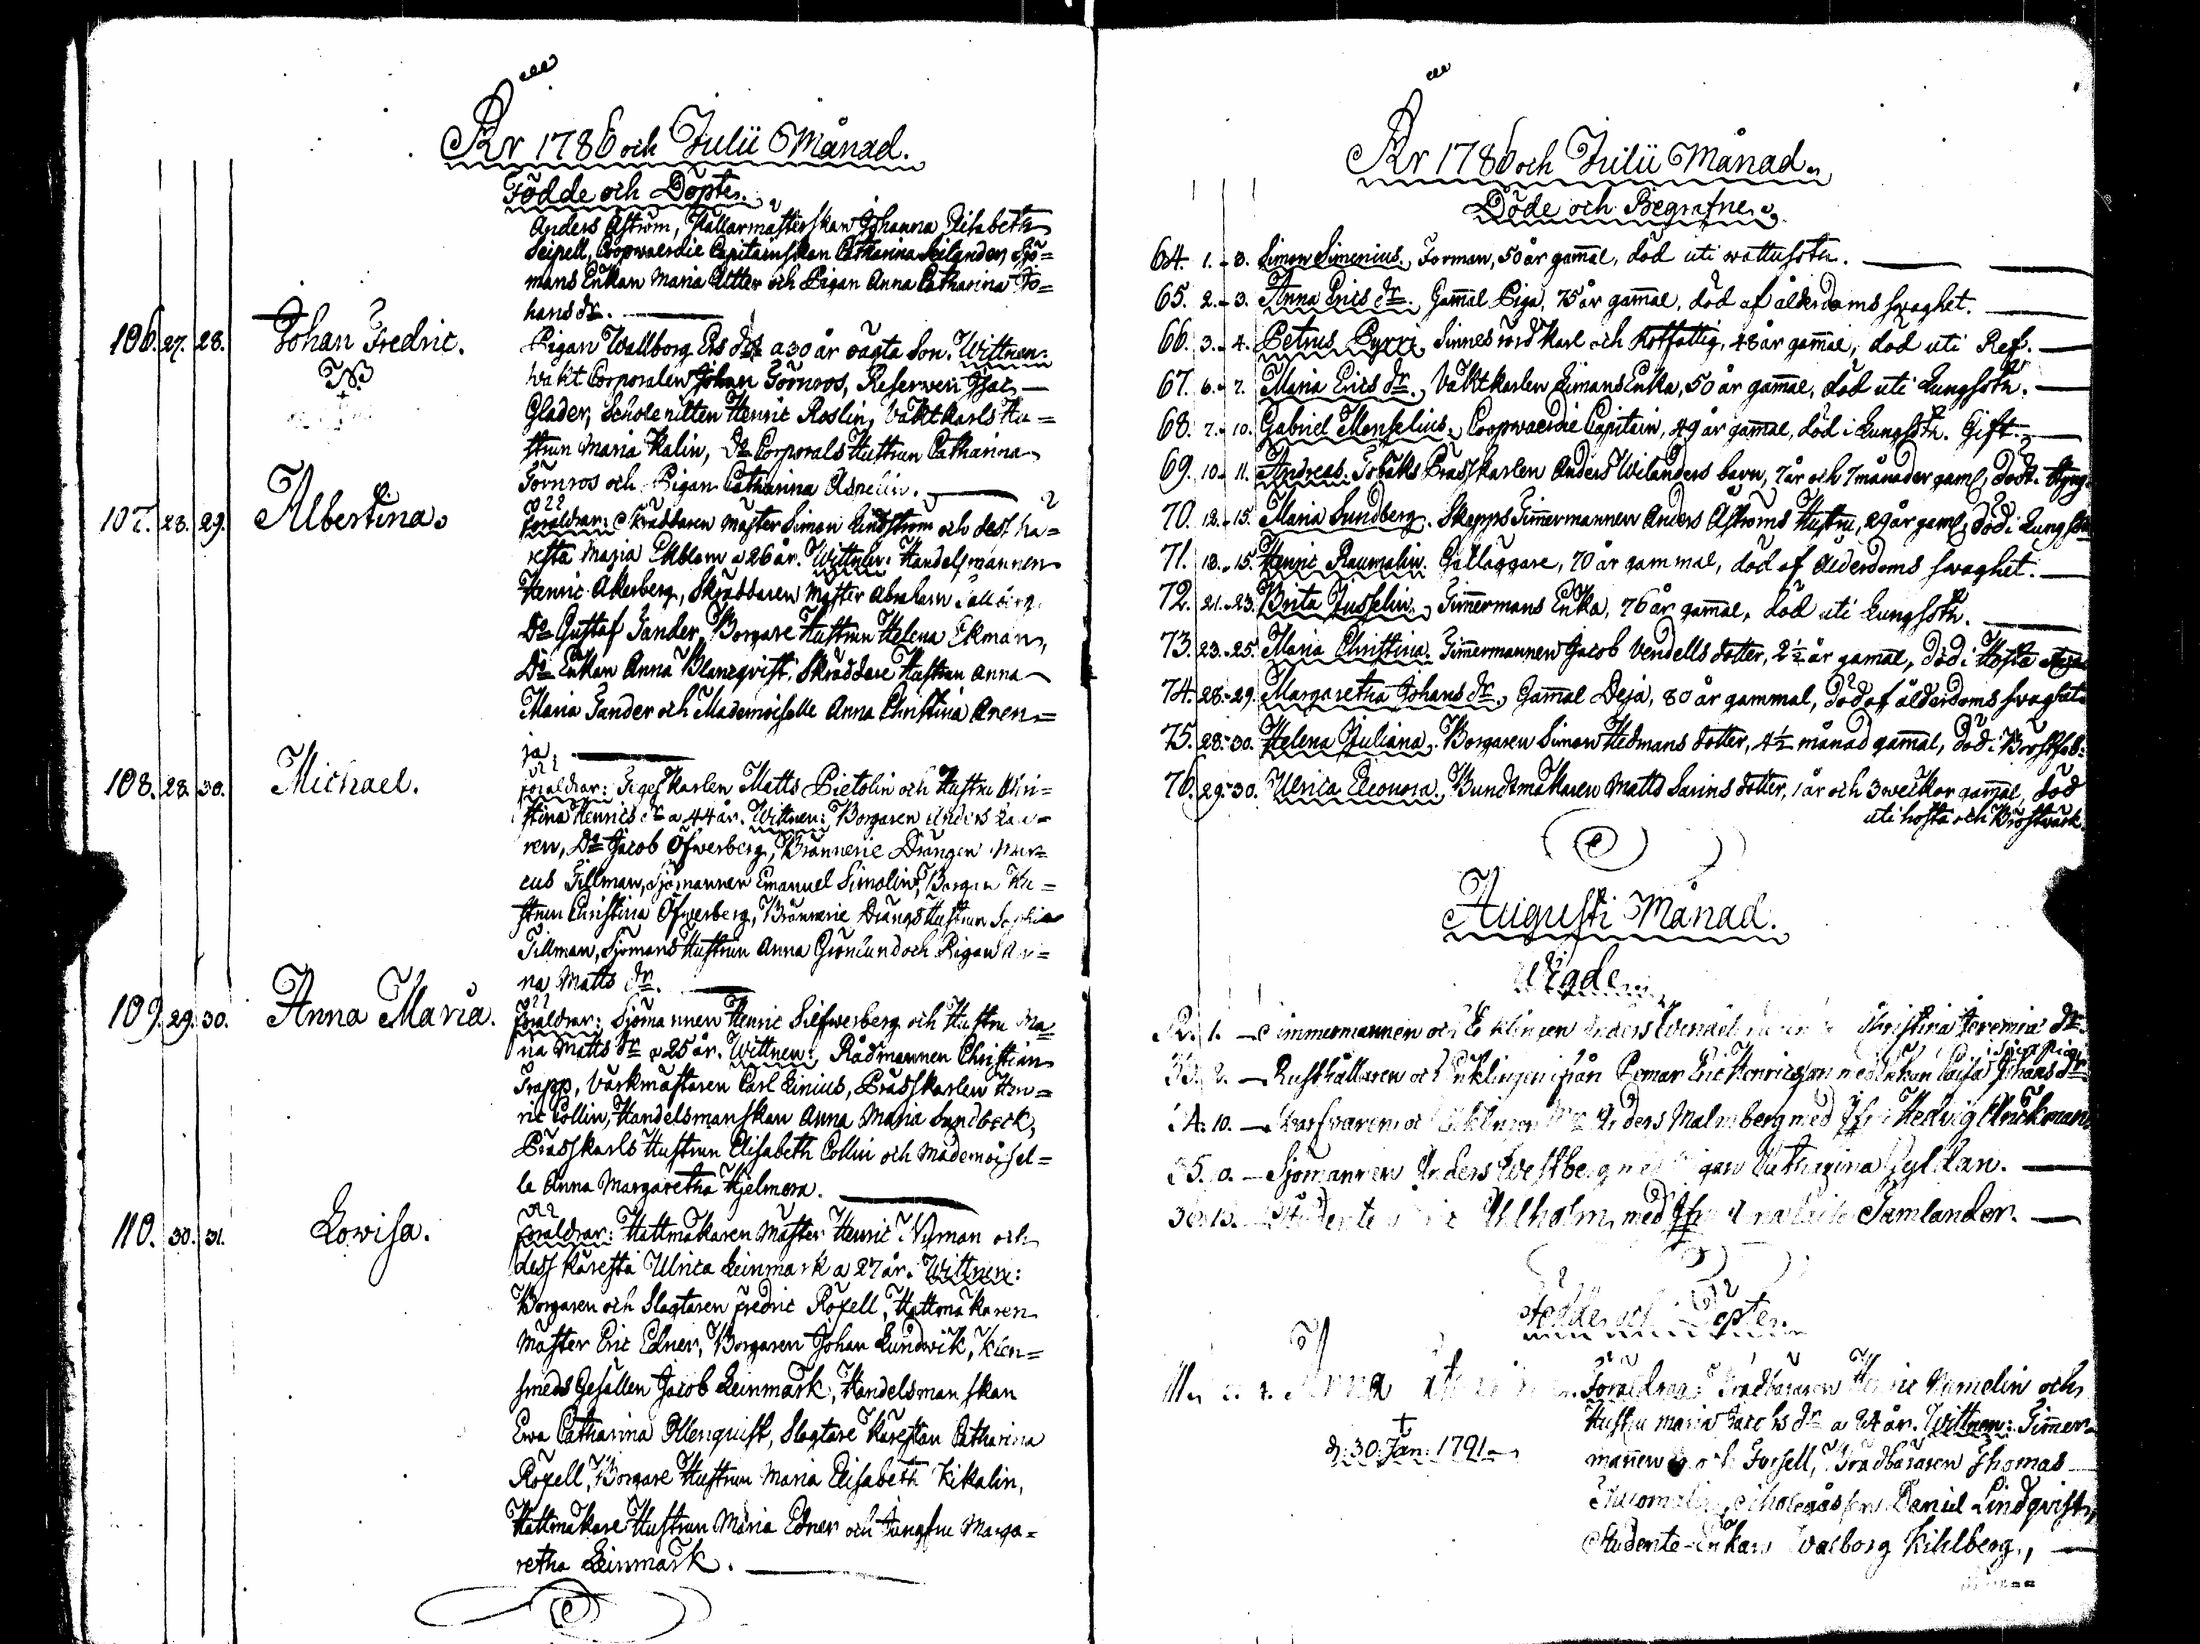 År 1786 och Julii Månad.
Födde och Döpte.
Anders Åström, Kallarmästerskan Johanna Elisabeth
Seipell, Coopvaerdie Capitainskan Catharina Seilander, Sjö=
mans Enkan Maria Utter och Pigan Anna Catharina Jo=
hans dr.
106. 27. 28. Johan Fredric.
Pigan Wallborg Ers dr a 30 år oägta Son. Wittnen:
Vakt Corporalen Johan Törnros, Reserven Isac
Glader, Scholepilten Henric Roslin, Vaktkarls Hu=
strun Maria Kalin, Do Corporals Hustrun Catharina
Törnros och Pigan Catharina Aspelin.
107. 28. 29. Albertina.
Föräldrar: Skräddaren Mäster Simon Lindström och dess kä=
resta Maria Ekblom a 26 år. Wittnen: Handelsmannen
Henric Åkerberg, Skräddaren Mäster Abraham
Do Gustaf Sander, Borgare Hustrun Helena Ekman,
Do Enkan Anna Blanqvist, Skräddare Hustrun Anna
Maria Sander och Mademoiselle Anna Christina Aren=
ja.
108. 28. 30. Michael.
Föräldrar: Tegelkarlen Matts Pietolin och Hustru Chri=
stina Henrics dr a 44 år. Wittnen: Borgaren Anders
ren, Do Jacob Öfwerberg, Brännerie Drängen Mar=
cus Tillman, Sjömannen Emanuel Simolin, Borgare Hu=
strun Christina Öfwerberg, Brännerie Drängs Hustrun Sophia
Tillman, Sjömans Hustrun Anna Grönlund och Pigan An=
na Matts dr.
109. 29. 30. Anna Maria.
Föräldrar: Sjömannen Henric Silfwerberg och Hustru Ma=
ria Matts dr a 25 år. Wittnen: Rådmannen Christian
Trapp, Värkmästaren Carl Linius, Prässkarlen Hen=
ric Collin, Handelsmanskan Anna Maria Sundbeck,
Prässkarls Hustrun Elisabeth Collin och Mademoisel=
le Anna Margaretha Hjelmera.
110. 30. 31. Lovisa.
Föräldrar: Hattmakaren Mäster Henric Nyman och
dess käresta Ulrica Leinmark a 27 år. Wittnen:
Borgaren och Slagtaren Fredric Roxell, Hattmakaren
Mäster Eric Edner, Borgaren Johan Lundwik, Klen=
smeds Gesällen Jacob Leinmark, Handelsmanskan
Ewa Catharina Ollenquist, Slagtare Kärestan Catharina
Roxell, Borgare Hustrun Maria Elisabeth Kikalin,
Hattmakare Hustrun Maria Edner och Jungfru Marga=
retha Leinmark.
År 1786 och Julii Månad.
Döde och Begrafne.
64. 1. 3. Simon Simenius, Forman, 50 år gammal, död uti wattusoth.
65. 2. 3. Anna Erics dr. Gammal Piga, 75 år gammal, död af ålderdoms svaghet.
66. 3. 4. Petrus Pyrri, Sinnesrörd karl och Rotfattig, 48 år gammal, död uti Ref.
67. 6. 7. Maria Erics dr. Vaktkarlen Limans Enka, 50 år gammal, död uti Lungsoth.
68. 7. 10. Gabriel Monselius, Coopvaerdie Capitain, 49 år gammal, död i Lungsoth. Gift.
69. 10. 11. Andreas. Tobaks Prässkarlen Anders Wilanders barn, 7 år och 7 månader gaml, död
70. 12. 15. Maria Sundberg. Skepps Timmermannen Anders Åströms Hustru, 29 år gaml, död i Lungsot
71. 13. 15. Henric Raumalin. Gatläggare, 70 år gammal, död af ålderdoms svaghet.
72. 21. 23. Brita Jusselin. Timmermans Enka, 76 år gammal, död uti Lungsoth.
73. 23. 25. Maria Christina. Timmermannen Jacob Vendells dotter, 2½ år gammal, död i Hosta
74. 28. 29. Margaretha Johans dr. Gammal Deja, 80 år gammal, död af ålderdoms svaghet
75. 28. 30. Helena Juliana. Borgaren Simon Hedmans dotter, 4½ månad gammal, död i Bröstfeb:
76. 29. 30. Ulrica Eleonora. Buntmakaren Matts Sarins dotter, 1 år och 3 weckor gammal, död
uti hosta och Bröstvärk.
Augusti Månad.
Wigde.
1. Timmermannen och Enklingen Anders Wendell Christina Jeremiæ dr
2. Rusthållaren och Enklingen ifrån Pemar Eric Henricsson med Enkan Caisa Johans dr
10. Anders Malmberg med Jfr Hedvig Bruckman
35. Sjömannen Anders Westberg med Pigan Catharina Gyldan.
Ahlholm med Jfr Tamlander.
Födde och Döpte.
111. Anna
✝
d. 30 Jan: 1791
Föräldrar: Trädbäraren Henric Numelin och
Hustru Maria Jacobs dr a 24 år. Wittnen: Timmer=
mannen Forsell, Trädbäraren Thomas
Daniel Lindqvist,
Studente Enkan Walborg Kihlberg,